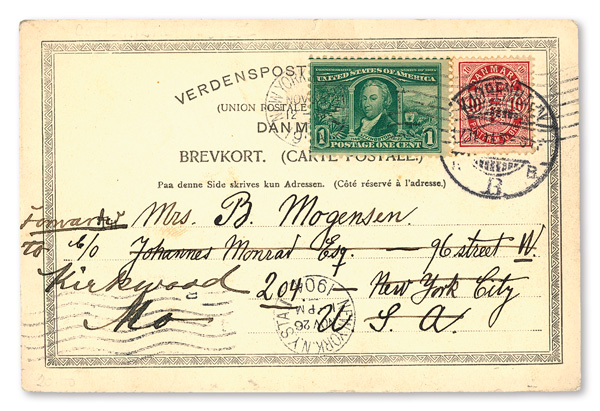 VERDENSPOST
(UNION POSTALE
DANM
BREVKORT. (CARTE POSTALE.)
Paa denne Side skrives kun Adressen. (Côté réservé à l'adresse.)
UNITED STATES OF AMERICA
1 1
POSTAGE ONE CENT
DANMARK
10 10
NEW YORK
NOV
12
KJØBENHAVN
B
B
forwarded Mrs. B. Mogensen.
to c/o Johannes Monrad Esq. — 96 street W.
Kirkwood 204. — New York City
Mo U. S. A.
NEW YORK, N.Y. STA.
NOV 26
PM
1904